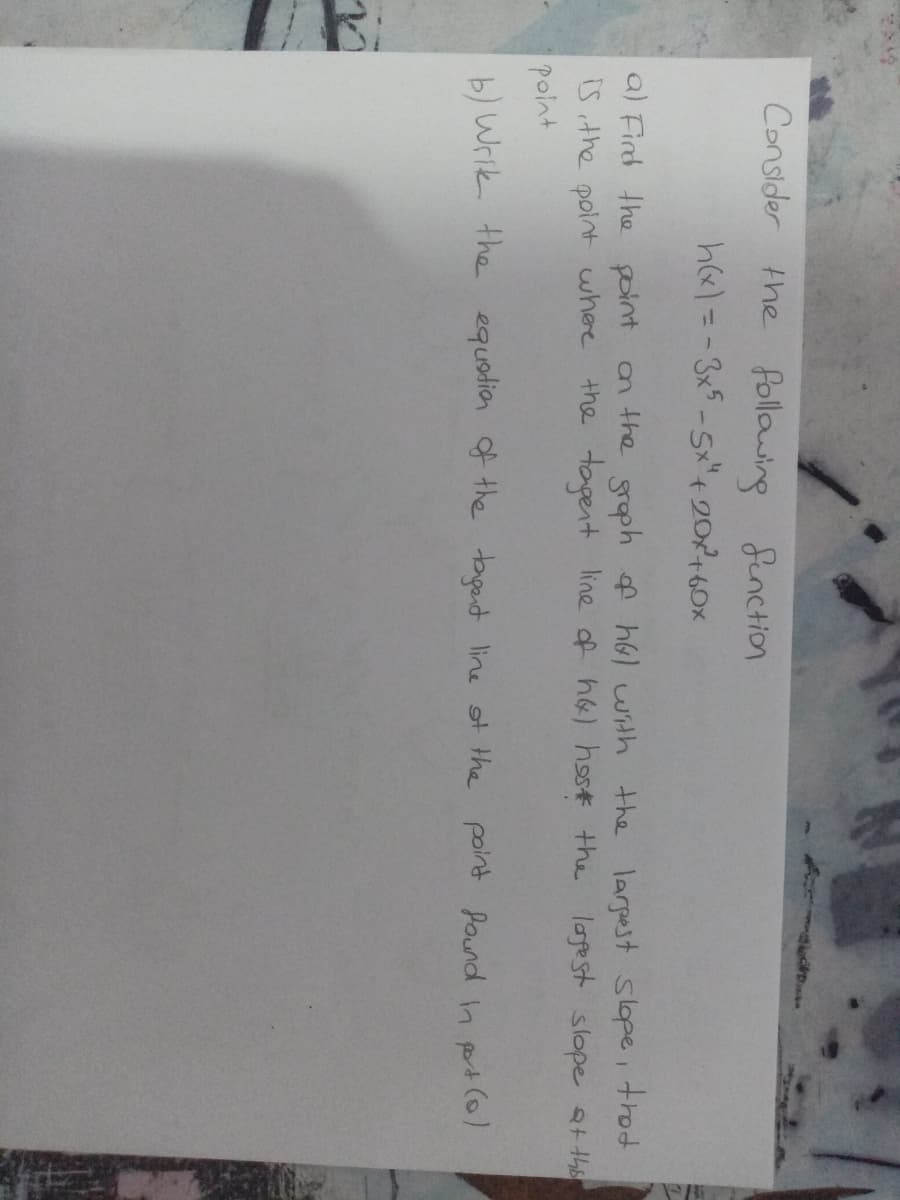 Consider the following function
h(x) = - 3x⁵ - 5x⁴ + 20x² + 60x
a) Find the point on the graph of h(x) with the largest slope, that
is, the point where the tangent line of h(x) has the largest slope at this
point
b) Write the equation of the tangent line at the point found in part (a)